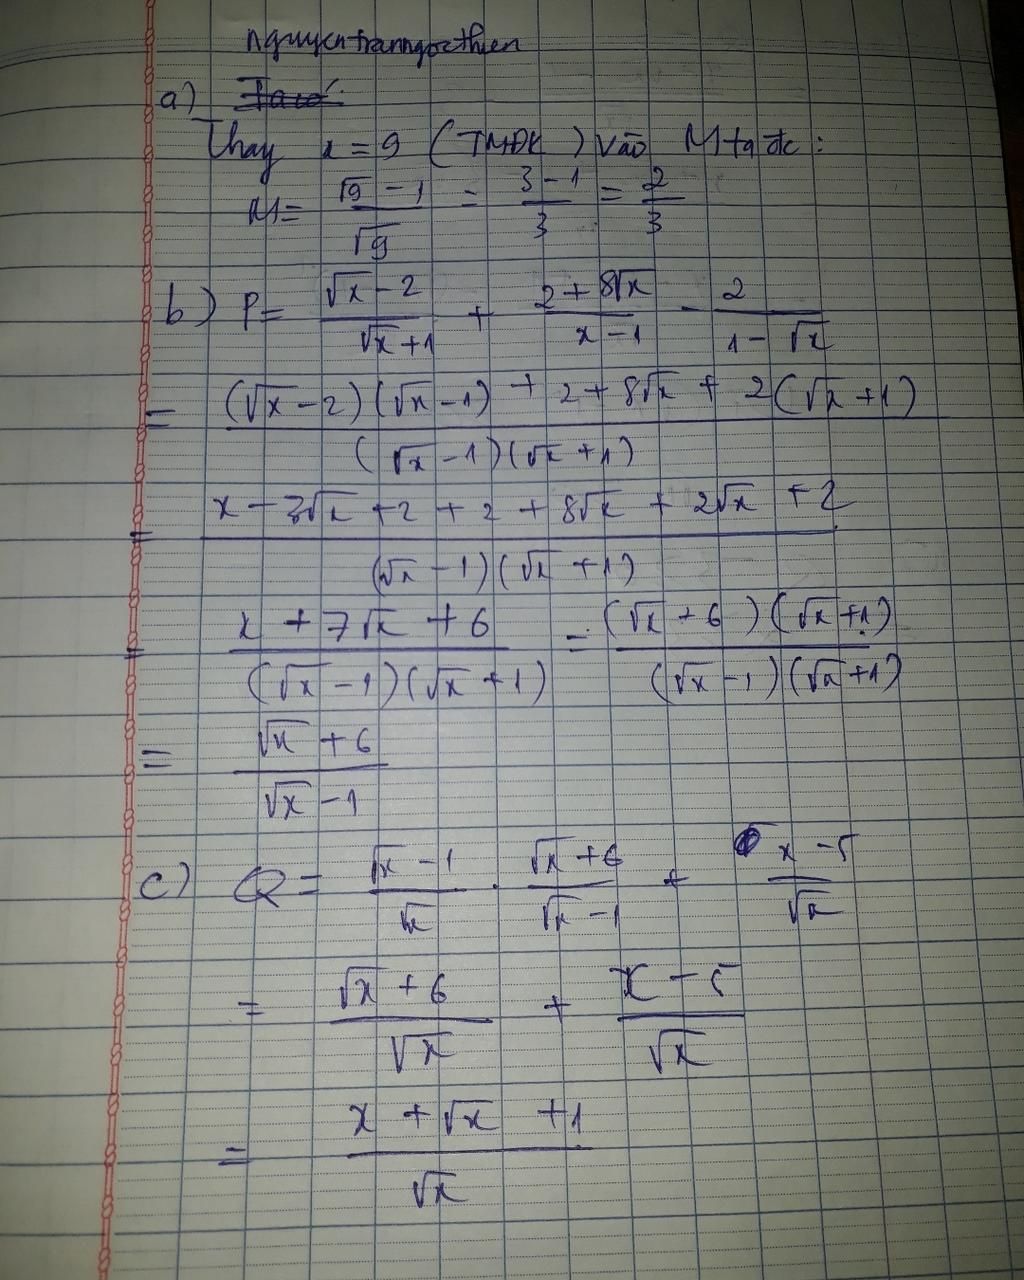 nguyentranngocthien
a) Ta có:
Thay x = 9 (TMĐK) vào M ta đc:
M = (√9 - 1)/√9 = (3 - 1)/3 = 2/3
b) P = (√x - 2)/(√x + 1) + (2 + 8√x)/(x - 1) - 2/(1 - √x)
= ((√x - 2)(√x - 1) + 2 + 8√x + 2(√x + 1))/((√x - 1)(√x + 1))
= (x - 3√x + 2 + 2 + 8√x + 2√x + 2)/((√x - 1)(√x + 1))
= (x + 7√x + 6)/((√x - 1)(√x + 1)) = ((√x + 6)(√x + 1))/((√x - 1)(√x + 1))
= (√x + 6)/(√x - 1)
c) Q = (√x - 1)/√x . (√x + 6)/(√x - 1) + (x - 5)/√x
= (√x + 6)/√x + (x - 5)/√x
= (x + √x + 1)/√x